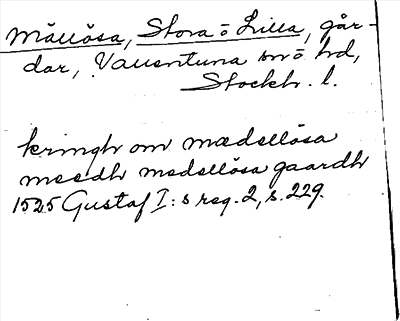 Mällösa, Stora o Lilla, går-
dar, Vallentuna sn o hd,
Stockh. l.
kringh om medellösa
meedh medellösa gaardh
1525 Gustaf I:s reg. 2, s. 229.